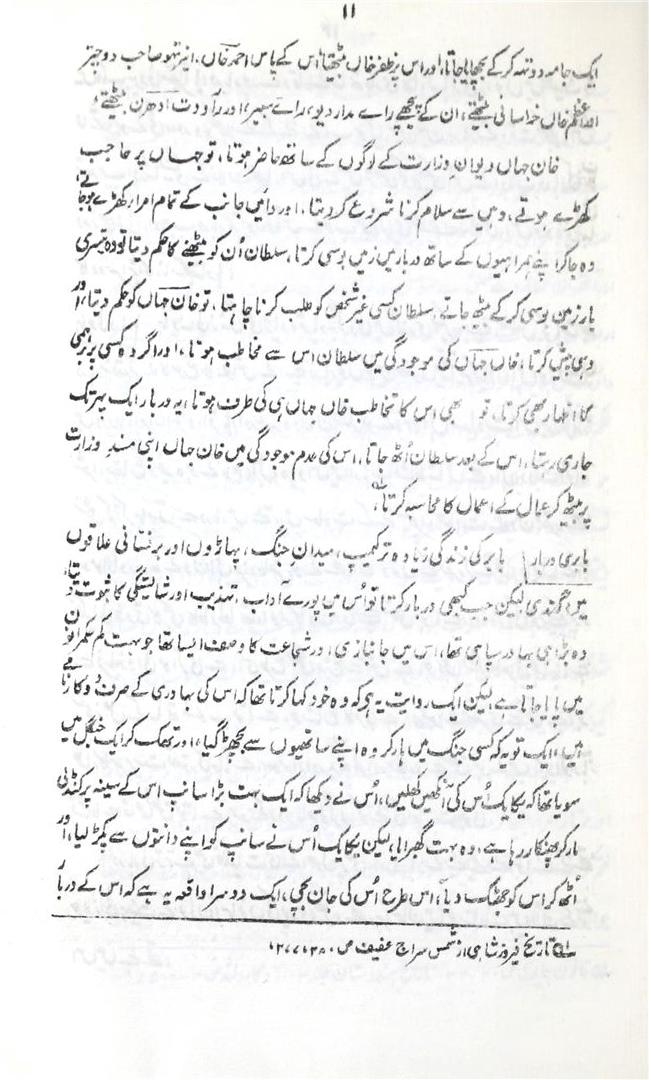 ۱۱
ایک جامہ دو تہہ کرکے بچھایا جاتا، اور اس پر ظفر خاں بیٹھتا، اس کے پاس احمد خاں، انیر تھو صاحب دو چتر
اعظم خاں خراسانی بیٹھتے، ان کے پیچھے رائے مدار دیو، رائے سبیر، اور راوت ادھرن بیٹھتے
خان جہاں دیوانِ وزارت کے لوگوں کے ساتھ حاضر ہوتا، تو جہاں پر حاجب
کھڑے ہوتے، وہیں سے سلام کرنا شروع کر دیتا، اور داہنی جانب کے تمام امراء کھڑے ہو جاتے
وہ جاکر اپنے ہمراہیوں کے ساتھ دربار میں زمیں بوسی کرتا، سلطان اُن کو بیٹھنے کا حکم دیتا تو وہ تیسری
بار زمین بوسی کرکے بیٹھ جاتے، سلطان کسی غیر شخص کو طلب کرنا چاہتا، تو خان جہاں کو حکم دیتا، اور
وہی پیش کرتا، خان جہاں کی موجودگی میں سلطان اس سے مخاطب ہوتا، اور اگر وہ کسی پر برہمی
کا اظہار بھی کرتا، تو بھی اس کا تخاطب خان جہاں ہی کی طرف ہوتا، یہ دربار ایک پہر تک
جاری رہتا، اس کے بعد سلطان اُٹھ جاتا، اس کی عدم موجودگی میں خان جہاں اپنی مسندِ وزارت
پر بیٹھ کر عمال کے اعمال کا محاسبہ کرتا،
بابری دربار بابر کی زندگی زیادہ تر کیمپ، میدانِ جنگ، پہاڑوں اور برفستانی علاقوں
میں گذری لیکن جب کبھی دربار کرتا تو اس میں پورے آداب، تہذیب اور شائستگی کا ثبوت دیتا،
وہ بڑا ہی بہادر سپاہی تھا، اس میں جانبازی اور شجاعت کا وصف ایسا تھا جو بہت کم حکمرانوں
میں پایا جاتا ہے، لیکن ایک روایت یہ ہے کہ وہ خود کہا کرتا تھا کہ اس کی بہادری کے صرف دو کارنامے
ہیں، ایک تو یہ کہ کسی جنگ میں ہار کر وہ اپنے ساتھیوں سے بچھڑ گیا، اور تھک کر ایک جنگل میں
سویا تھا کہ یکایک اُس کی آنکھیں کھلیں، اُس نے دیکھا کہ ایک بہت بڑا سانپ اس کے سینہ پر کنڈلی
مار کر پھنکار رہا ہے، وہ بہت گھبرایا، لیکن یکایک اُس نے سانپ کو اپنے دانتوں سے پکڑ لیا، اور
اُٹھ کر اس کو جھٹک دیا، اس طرح اُس کی جان بچی، ایک دوسرا واقعہ یہ ہے کہ اس کے دربار
لہ تاریخ فیروز شاہی از شمس سراج عفیف ص